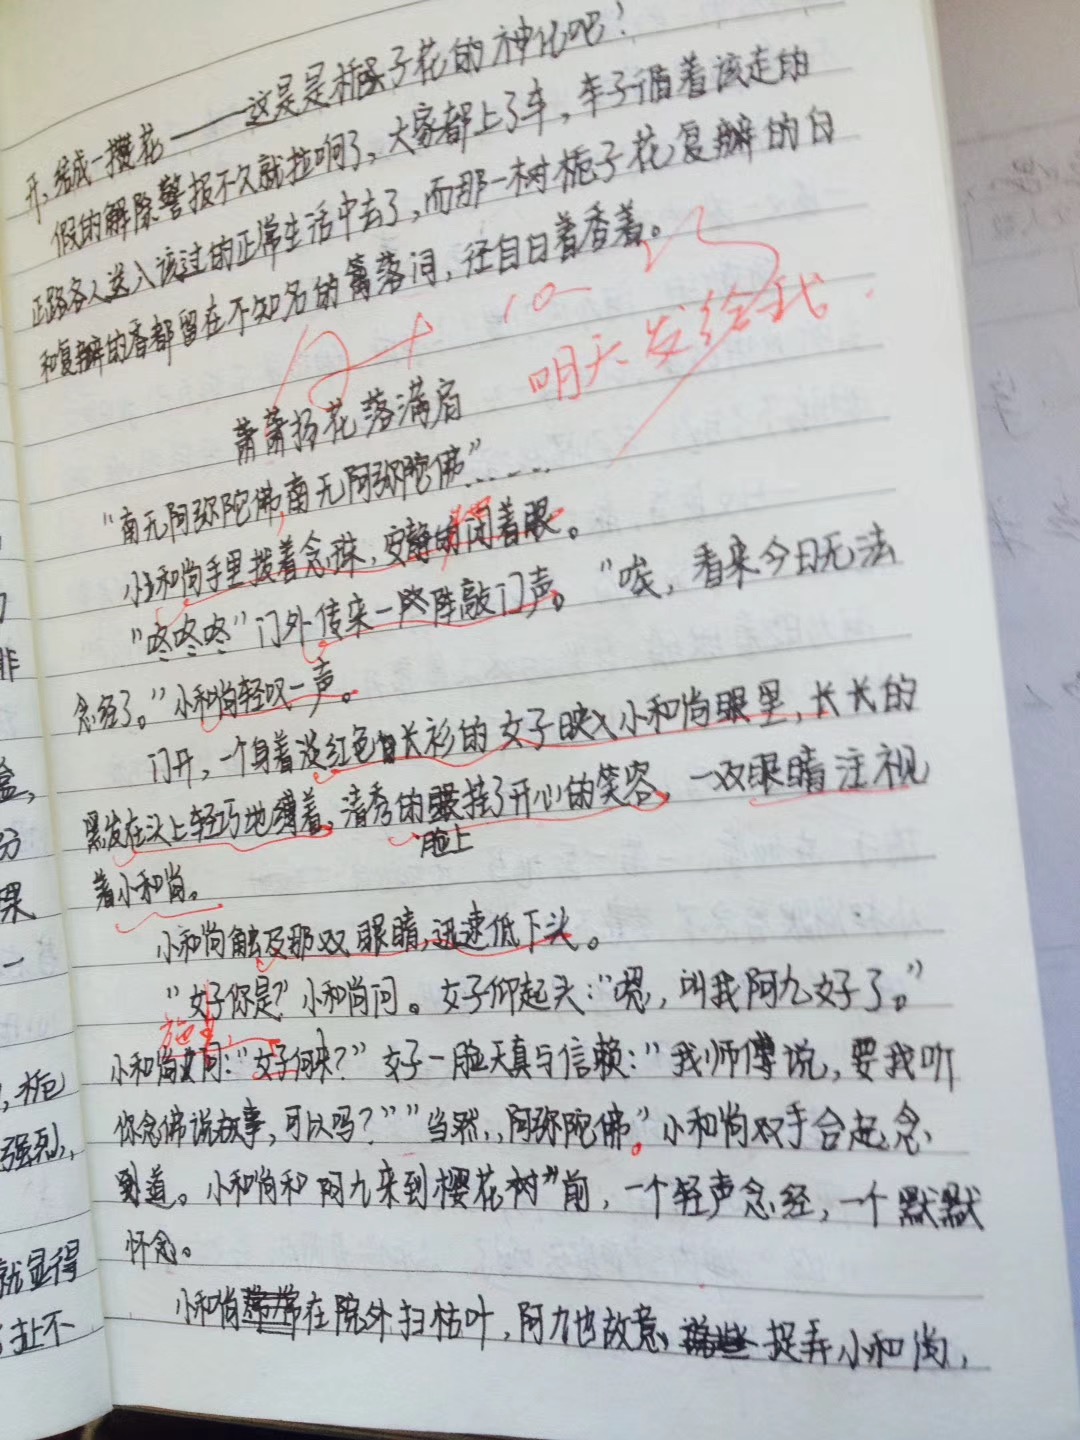 开,结成一攒花——这是是栀子花的神化吧!
假的解除警报不久就拉响了,大家都上了车,车子循着该走的
正路各人送入该过的正常生活中去了,而那一树栀子花复瓣的白
和复瓣的香都留在不知名的篱落间,径自白着香着。
A+
10-23
明天发给我.
萧萧扬花落满肩
“南无阿弥陀佛,南无阿弥陀佛”……
小和尚手里拨着念珠,安静的闭着眼。
“咚咚咚”门外传来一阵敲门声。“唉,看来今日无法
念经了。”小和尚轻叹一声。
门开,一个身着淡红色长衫的女子映入小和尚眼里,长长的
黑发在头上轻巧地缚着,清秀的脸上挂了开心的笑容,一双眼睛注视
着小和尚。
小和尚触及那双眼睛,迅速低下头。
“女子你是?”小和尚问。女子仰起头:“嗯,叫我阿九好了。”
施主
小和尚问:“女子何来?”女子一脸天真与信赖:“我师傅说,要我听
你念佛说故事,可以吗?”“当然,阿弥陀佛。”小和尚双手合起念
到道。小和尚和阿九来到樱花树前,一个轻声念经,一个默默
怀念。
小和尚在院外扫枯叶,阿九也故意捉弄小和尚,
非
盒,
分
果
一
,栀
强烈,
就显得
扯不